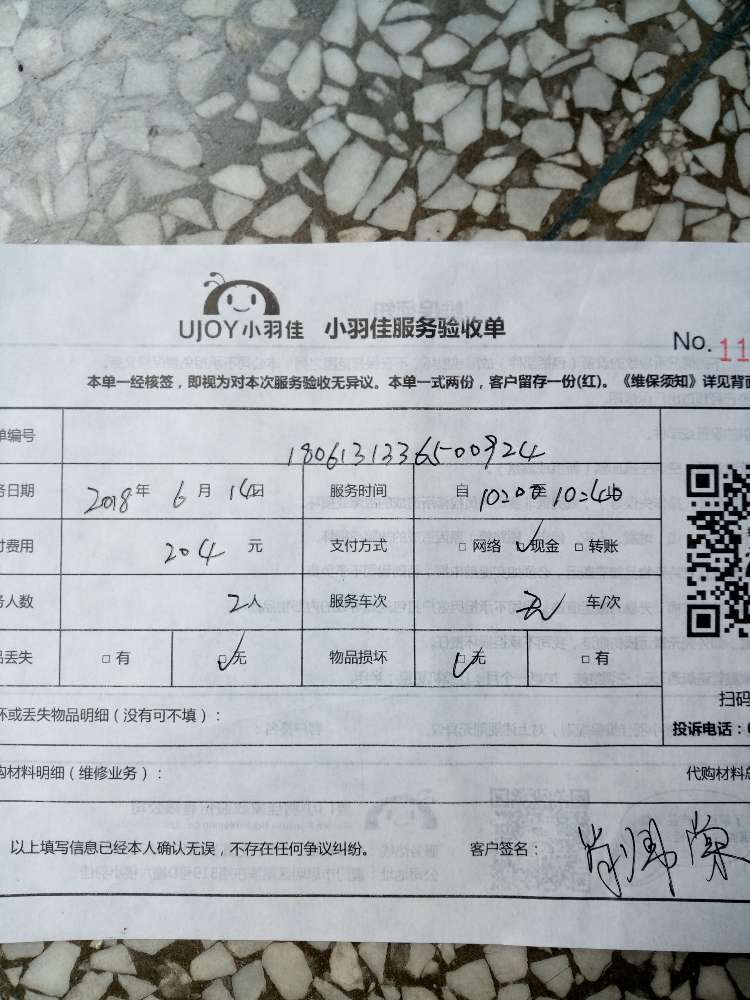 UJOY小羽佳 小羽佳服务验收单
No. 11
本单一经核签，即视为对本次服务验收无异议。本单一式两份，客户留存一份(红)。《维保须知》详见背面
单编号 1806131336500924
务日期 2018年 6月 14日 服务时间 自 10:00至 10:40
付费用 204 元 支付方式 □ 网络 ✓现金 □ 转账
务人数 2人 服务车次 无 车/次
品丢失 □ 有 ✓无 物品损坏 ✓无 □ 有
扫码
坏或丢失物品明细（没有可不填）：
投诉电话：0
购材料明细（维修业务）：
代购材料总
以上填写信息已经本人确认无误，不存在任何争议纠纷。 客户签名：